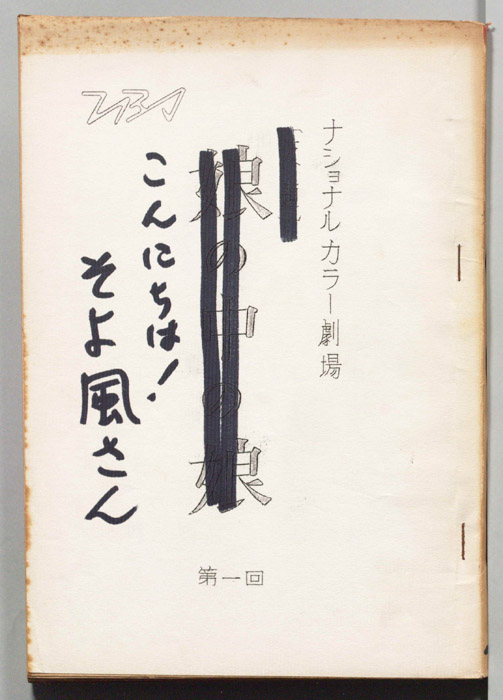 ナショナルカラー劇場
娘の中の娘
こんにちは!
そよ風さん
TBS
第一回